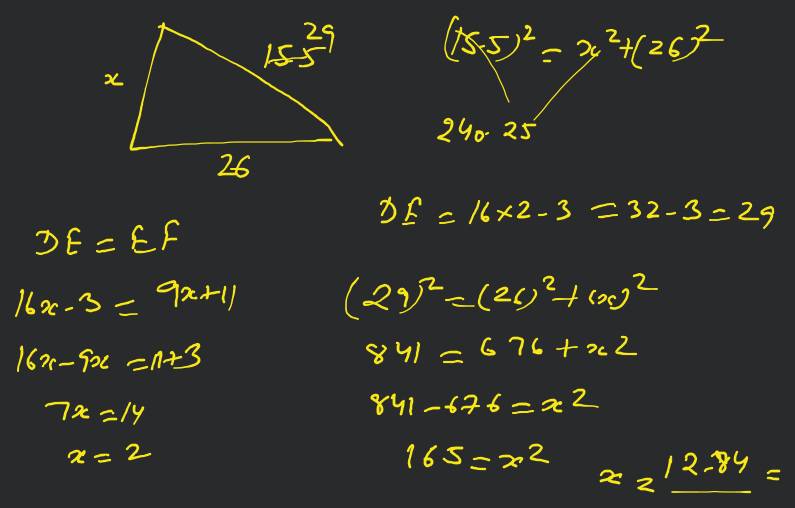 x
15.5 29
26
(15.5)² = x² + (26)²
240.25
DE = EF
16x - 3 = 9x + 11
16x - 9x = 11 + 3
7x = 14
x = 2
DE = 16 × 2 - 3 = 32 - 3 = 29
(29)² = (26)² + (x)²
841 = 676 + x2
841 - 676 = x2
165 = x2
x = 12.84 =